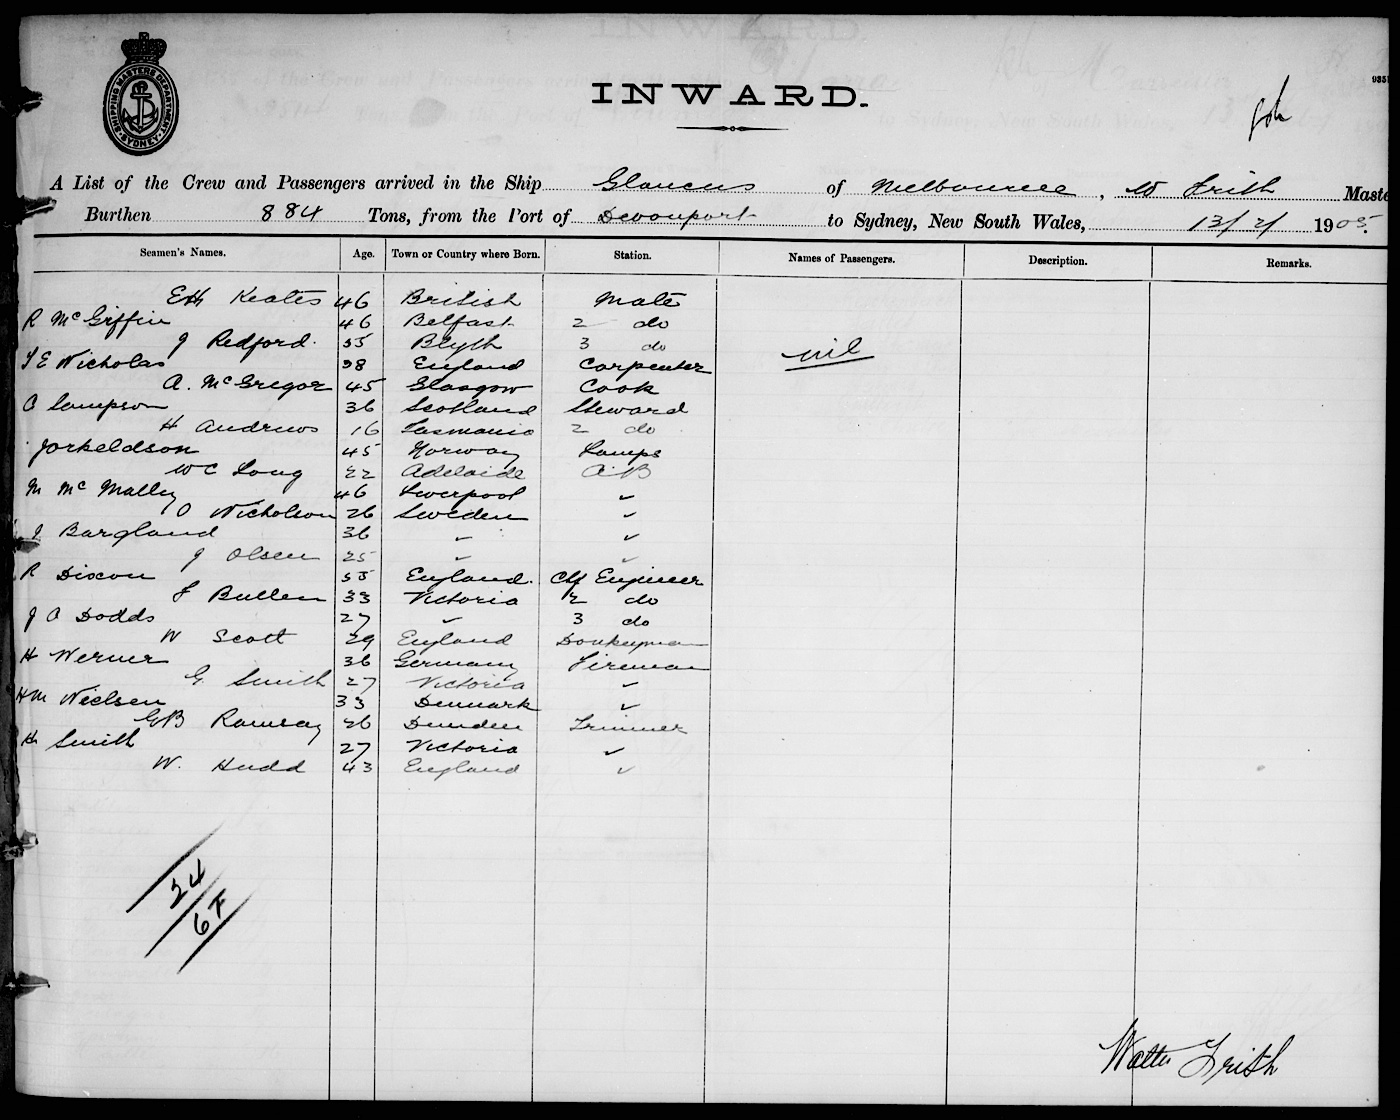 SHIPPING MASTERS DEPARTMENT SYDNEY
INWARD.
A List of the Crew and Passengers arrived in the Ship Glaucus of Melbourne, W Frith Maste
Burthen 884 Tons, from the Port of Devonport to Sydney, New South Wales, 13/2/ 1905.
Seamen's Names. Age. Town or Country where Born. Station. Names of Passengers. Description. Remarks.
EH Keates 46 British Mate
R McGiffin 46 Belfast 2 do
J Redford. 55 Blyth 3 do
nil
T E Nicholas 38 England Carpenter
A. McGregor 45 Glasgow Cook
C Sampson 36 Scotland Steward
H Andrews 16 Tasmania 2 do
Jorkeldson 45 Norway Lamps
WC Long 22 Adelaide A.B
M McMalley 46 Liverpool ✓
O Nicholson 26 Sweden ✓
J Bargland 36 ✓ ✓
J Olsen 25 ✓ ✓
R Dixon 55 England. Chf Engineer
F Bullen 33 Victoria 2 do
J A Dodds 27 ✓ 3 do
W Scott 29 England Donkeyman
H Werner 36 Germany Fireman
G. Smith 27 Victoria ✓
HM Nielsen 33 Denmark ✓
GB Ramsay 26 Dundee Trimmer
H Smith 27 Victoria ✓
W. Hudd 43 England ✓
24
6F
Walter Frith